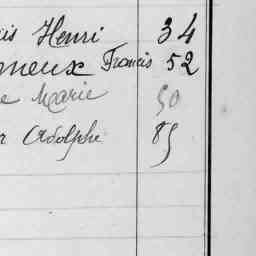 is Henri 34
meux Francis 52
e Marie 50
r Adolphe 85